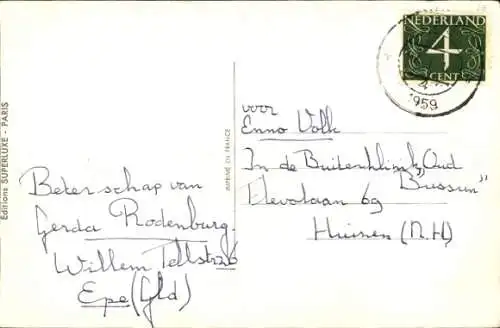 Editions SUPERLUXE - PARIS
Beterschap van
Gerda Rodenburg.
Willem Tellstr.
Epe (Gld)
IMPRIMÉ EN FRANCE
NEDERLAND
4
CENT
4
1959
voor
Enno Volk
In de Buitenkliniek "Oud
Bussum"
Flevolaan 69
Huizen (N.H)